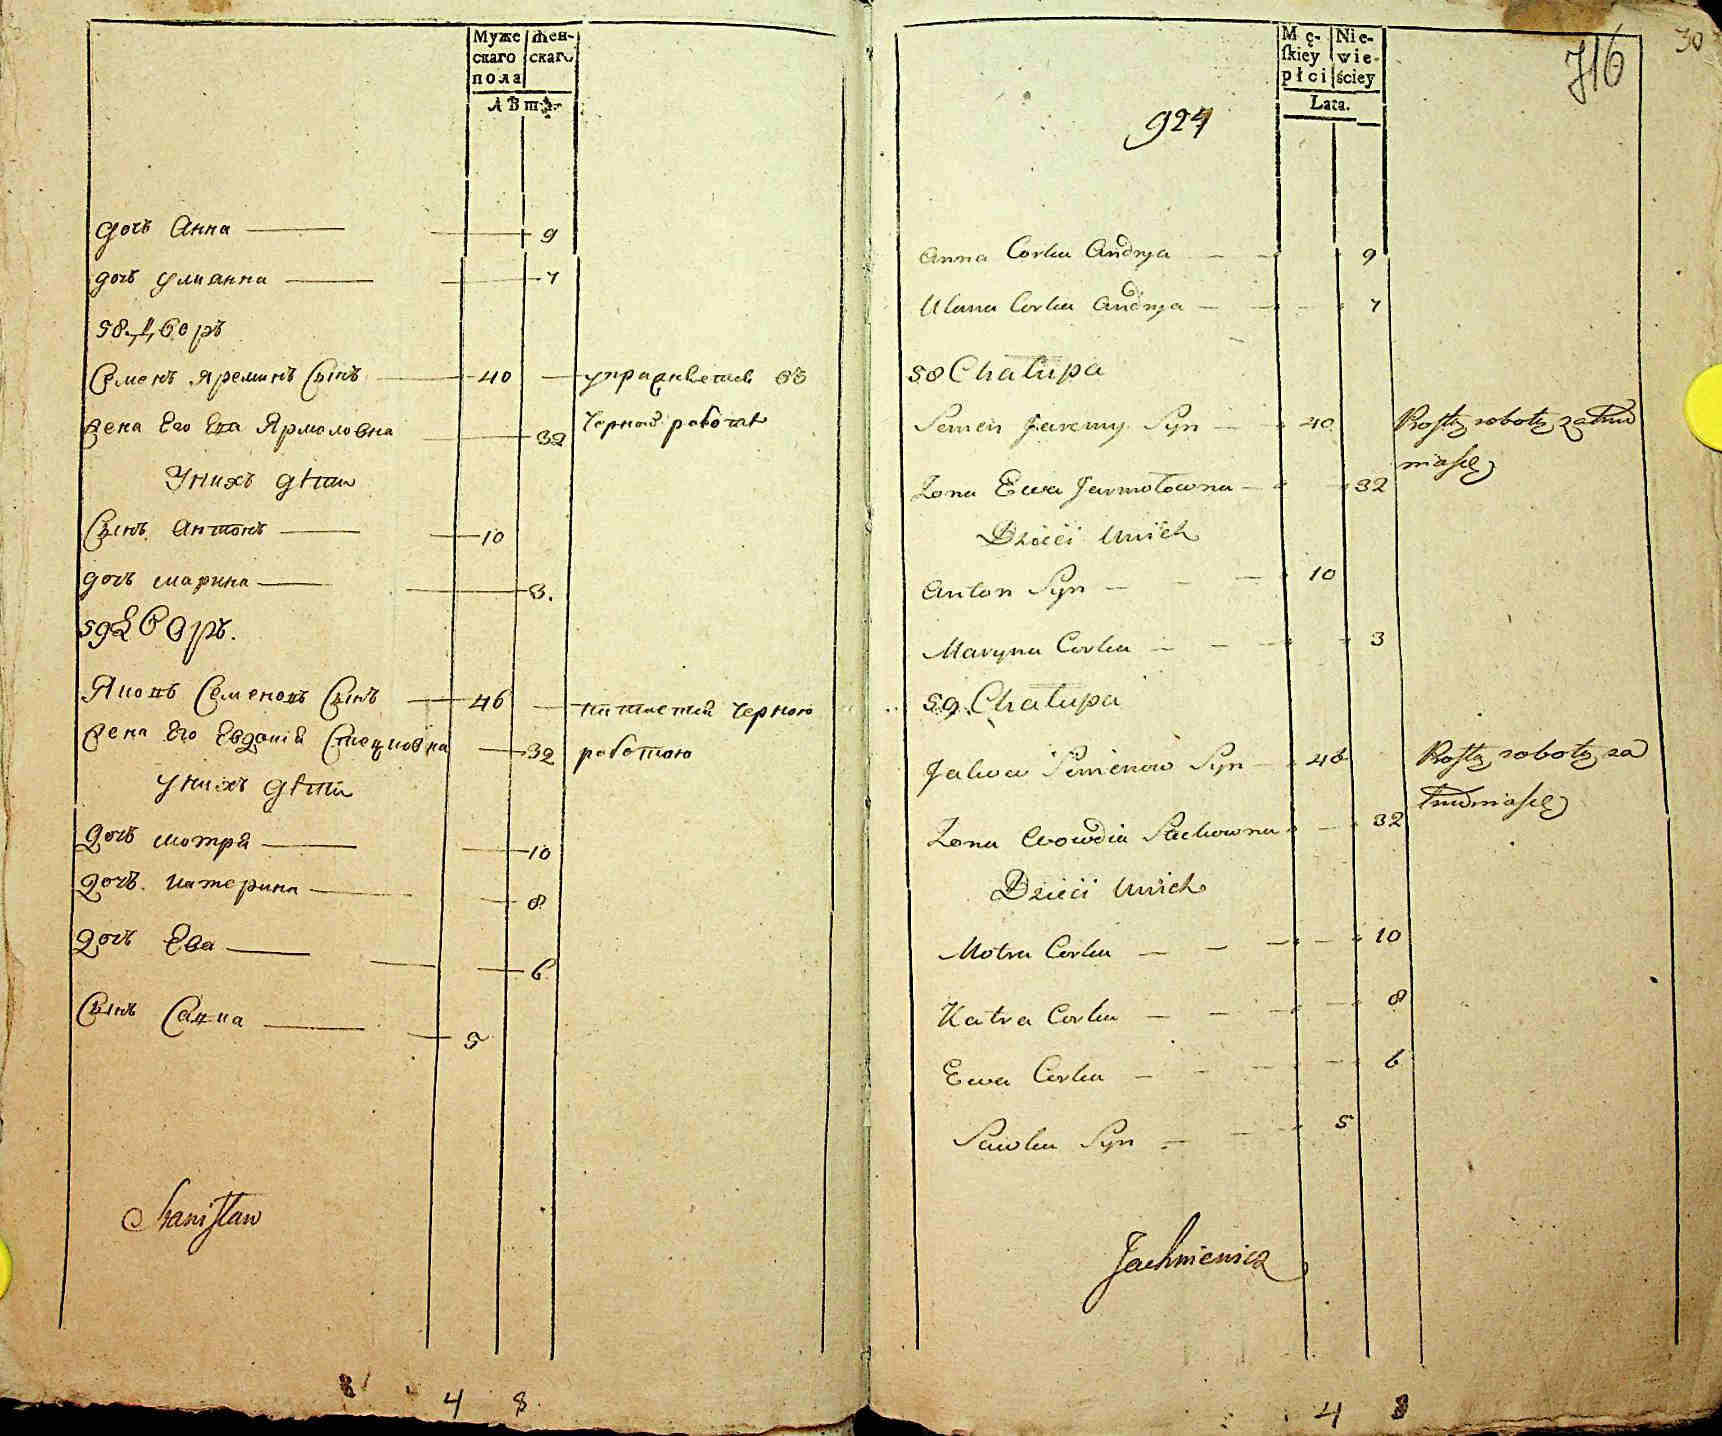 Муже
скаго
пола
Жен-
скаго
лѣта
дочь Анна 9
дочь Улианна 7
58 Дворъ
Семенъ Яреминъ Сынъ 40 упражняетца въ
жена Его Ева Ярмоловна 32 Черной работѣ
У нихъ дѣти
Сынъ Антонъ 10
дочь Марина 3.
59 Дворъ.
Яковъ Семеновъ Сынъ 46 питаетца Черною
жена Его Евдокия 32 работою
у нихъ дѣти
Дочь Мотря 10
Дочь Катерина 8
Дочь Ева 6
Сынъ Савка 5
Stanisław
4 8
30
716
Mę-
ſkiey
płci
Nie-
wie-
ściey
Lata.
924
Anna Corka Andrya 9
Ulana Corka Andrya 7
58 Chałupa
Semen Jaremy Syn 40 Rosłą robotą zatrud
niasię
Zona Ewa Jarmołowna 32
Dzieci Unich
Anton Syn 10
Maryna Corka 3
59 Chałupa
Jakow Semenow Syn 46 Rosłą robotą za
trudniasię
Zona Ewowdia 32
Dzieci Unich
Motra Corka 10
Katra Corka 8
Ewa Corka 6
Sawka Syn 5
Jachniewicz
4 8